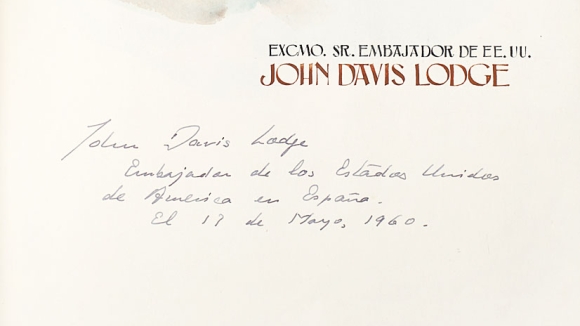 EXCMO. SR. EMBAJADOR DE EE. UU.
JOHN DAVIS LODGE
John Davis Lodge
Embajador de los Estados Unidos
de America en España.
El 17 de Mayo, 1960.